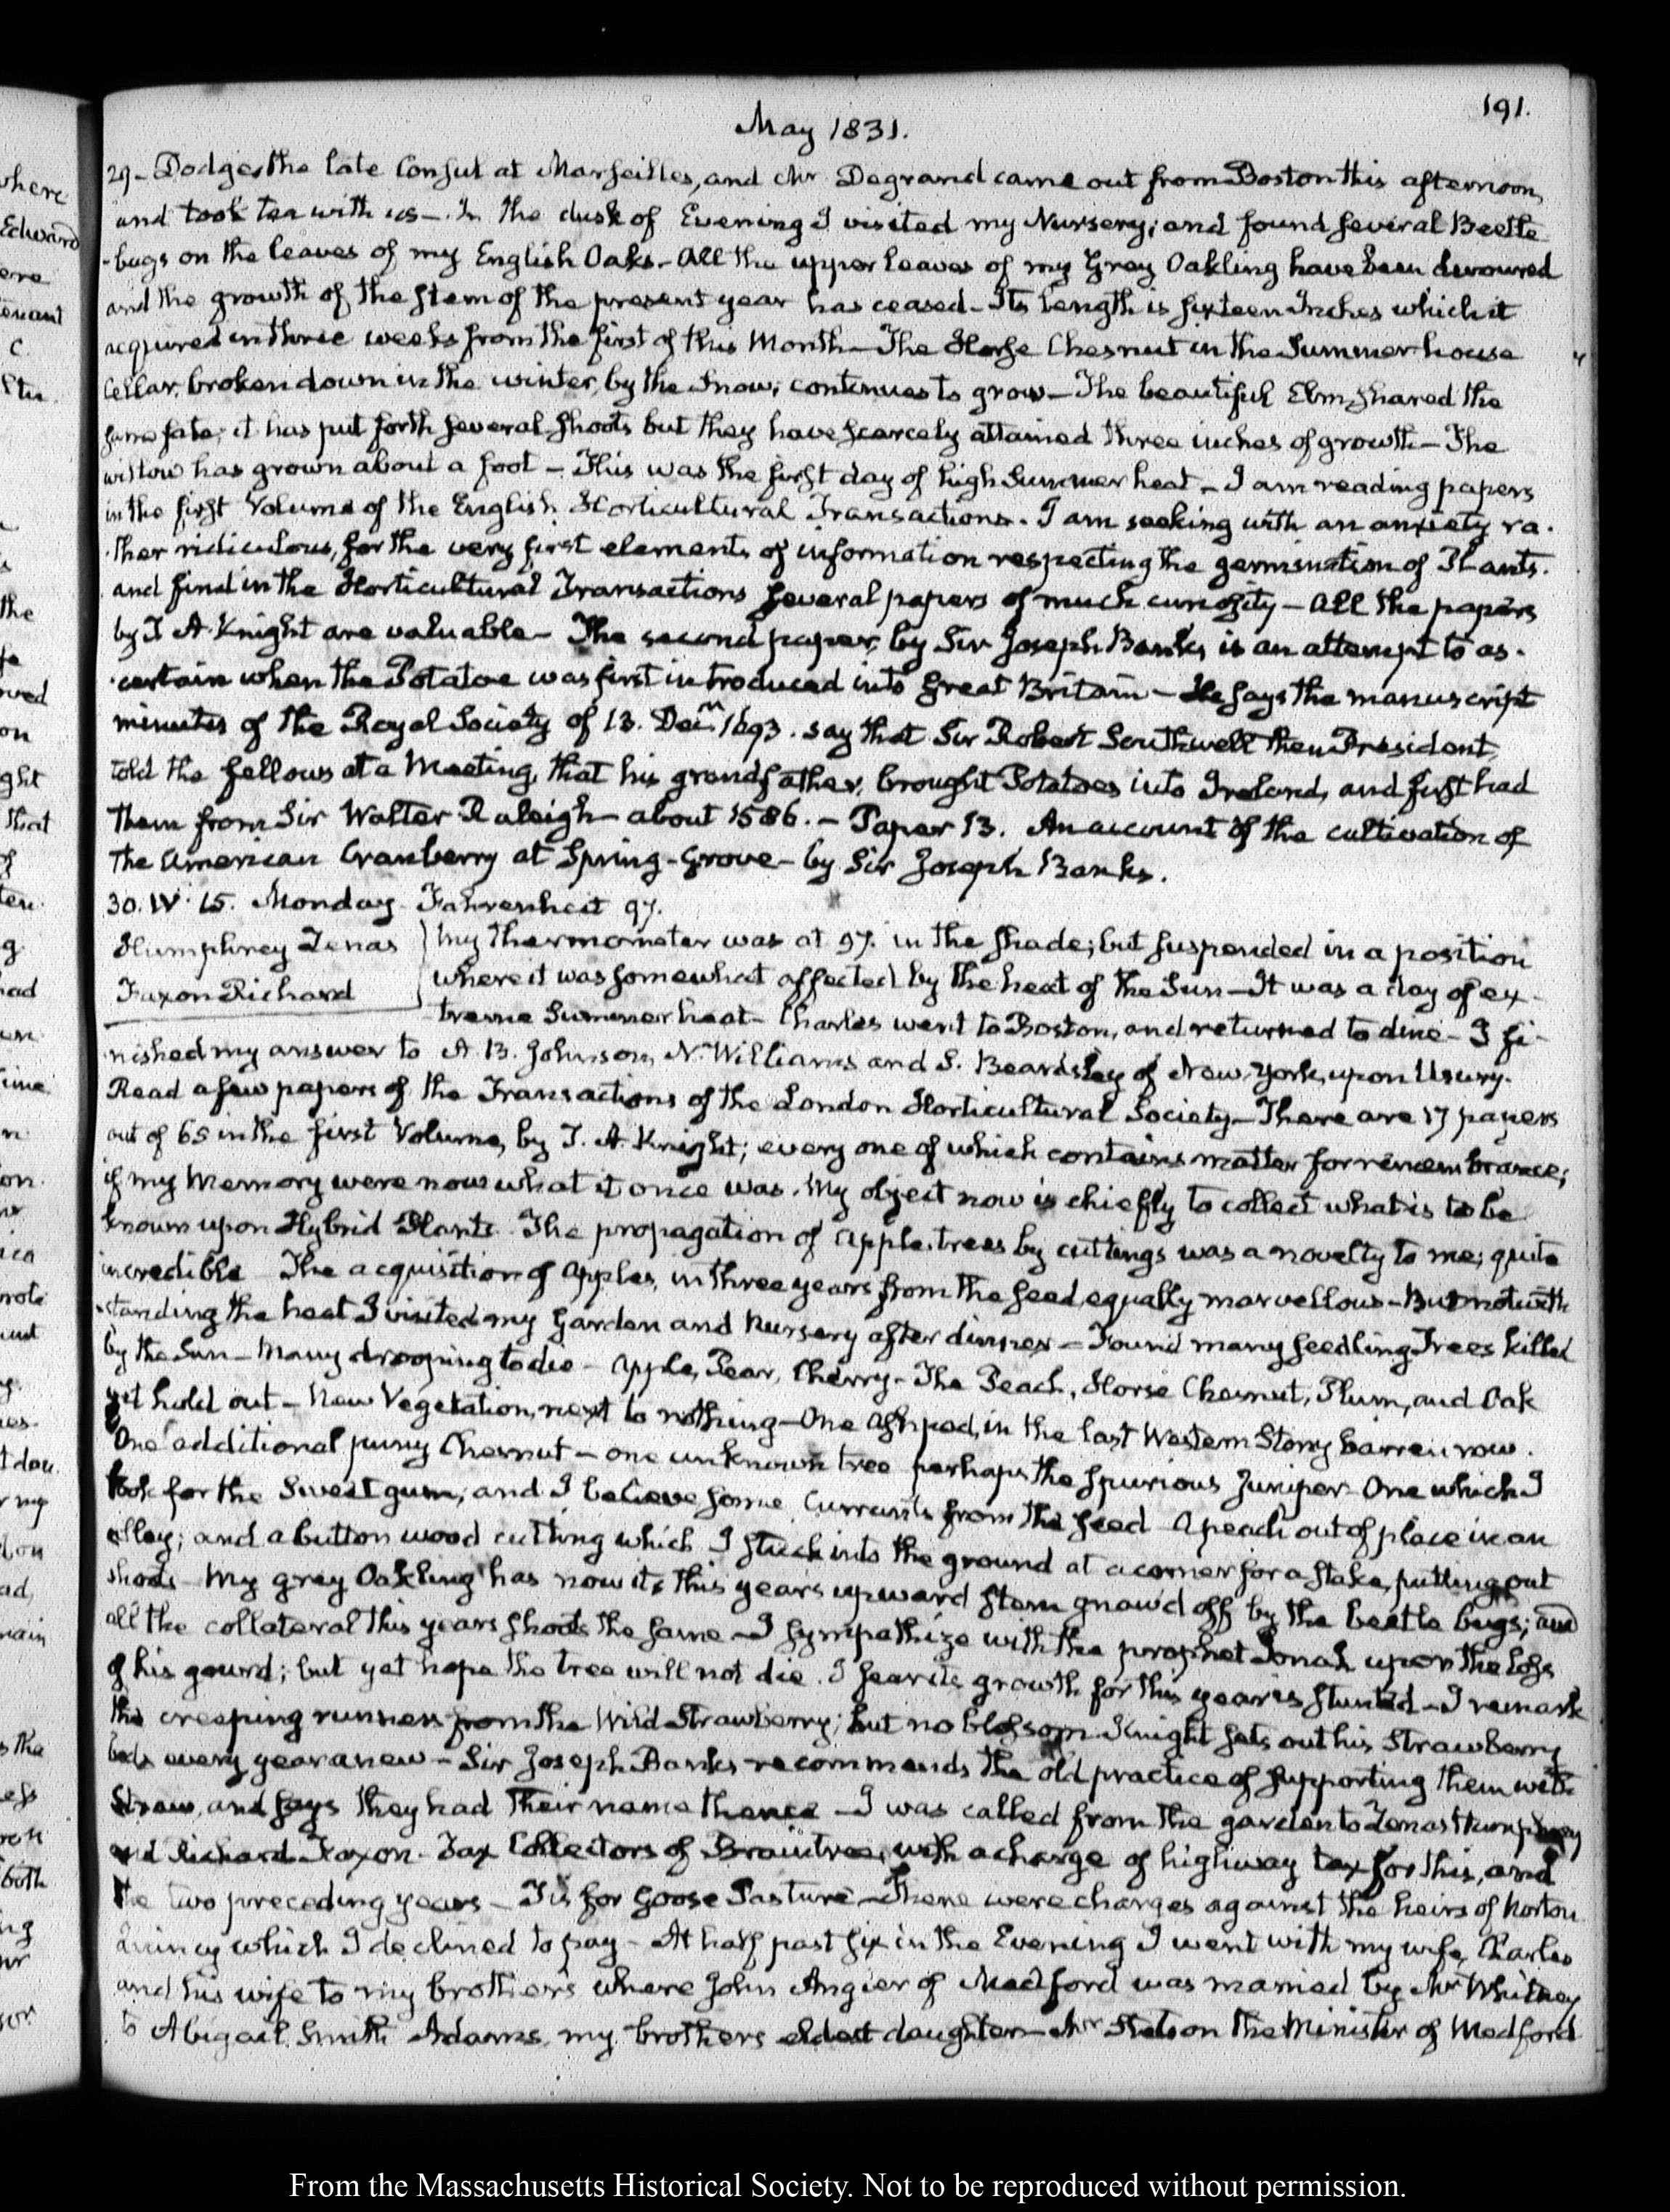 191.
May 1831.
29 - Dodge, the late Consul at Marseilles, and Mr Degrand came out from Boston this afternoon,
and took tea with us - In the dusk of Evening I visited my Nursery; and found several Beetle
-bugs on the leaves of my English Oaks - All the upper leaves of my Grey Oakling have been devoured
and the growth of the stem of the present year has ceased - Its length is sixteen Inches which it
acquired in three weeks from the first of this Month - The Horse Chesnut in the Summer house
Cellar, broken down in the winter, by the Snow, continues to grow - The beautiful Elm shared the
same fate; it has put forth several shoots but they have scarcely attained three inches of growth - The
willow has grown about a foot - This was the first day of high Summer heat - I am reading papers
in the first Volume of the English Horticultural Transactions. I am seeking with an anxiety ra-
-ther ridiculous, for the very first elements of information respecting the germination of Plants.
and find in the Horticultural Transactions several papers of much curiosity - All the papers
by T A Knight are valuable - The second paper, by Sir Joseph Banks is an attempt to as-
-certain when the Potatoe was first introduced into Great Britain - He says the manuscript
minutes of the Royal Society of 13. Decr 1693. say that Sir Robert Southwell then President,
told the fellows at a Meeting, that his grandfather, brought Potatoes into Ireland, and first had
them from Sir Walter Raleigh - about 1586. - Paper 13. An account of the cultivation of
the American Cranberry at Spring-Grove - by Sir Joseph Banks.
30. IV. 15. Monday. Fahrenheit 97.
Humphrey Lenas
Faxon Richard
My thermometer was at 97. in the shade; but suspended in a position
where it was somewhat affected by the heat of the Sun - It was a day of ex-
treme Summer heat - Charles went to Boston, and returned to dine - I fi-
-nished my answer to A. B. Johnson, N. Williams and S. Beardsley of New-York, upon Usury.
Read a few papers of the Transactions of the London Horticultural Society - There are 17 papers
out of 65 in the first Volume, by T. A. Knight; every one of which contains matter for remembrance;
if my Memory were now what it once was. My object now is chiefly to collect what is to be
known upon Hybrid Plants. The propagation of apple trees by cuttings was a novelty to me; quite
incredible The acquisition of apples, in three years from the seed equally marvellous - But notwith
-standing the heat I visited my Garden and Nursery after dinner - Found many seedling Trees killed
by the Sun - Many drooping to die - Apple, Pear, Cherry - The Peach, Horse Chesnut, Plum, and Oak
yet hold out - New Vegetation, next to nothing - One Ash pod, in the last Western Stony barren row.
One additional puny Chesnut - one unknown tree perhaps the spurious Juniper One which I
took for the Sweet gum; and I believe some Currants from the seed A peach out of place in an
alley; and a button wood cutting which I stuck into the ground at a corner for a stake, putting out
shoots - My grey Oakling has now its this years upward stem gnaw'd off by the beetle bugs; and
all the collateral this years shoots the same - I sympathize with the prophet Jonah upon the loss
of his gourd; but yet hope the tree will not die. I fear its growth for this year is stunted - I remark
the creeping runners from the Wild Strawberry; but no blossom Knight sets out his Strawberry
beds every year anew - Sir Joseph Banks recommends the old practice of supporting them with
Straw, and says they had their name thence - I was called from the garden to Lenas Humphrey
and Richard Faxon. Tax Collectors of Braintree, with a charge of highway tax for this, and
the two preceding years - Tis for Goose Pasture - There were charges against the heirs of Norton
Quincy which I declined to pay - At half past six in the Evening I went with my wife, Charles
and his wife to my brother's where John Angier of Medford was married by Mr Whitney
to Abigail Smith Adams, my brothers eldest daughter - Mr Stetson the Minister of Medford
From the Massachusetts Historical Society. Not to be reproduced without permission.